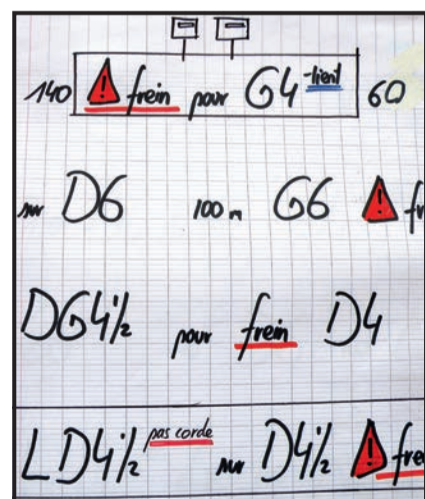 140 ! frein pour G4 -tient 60
sur D6 100 m G6 ! fr
DG4½ pour frein D4
LD4½ pas corde sur D4½ ! fre